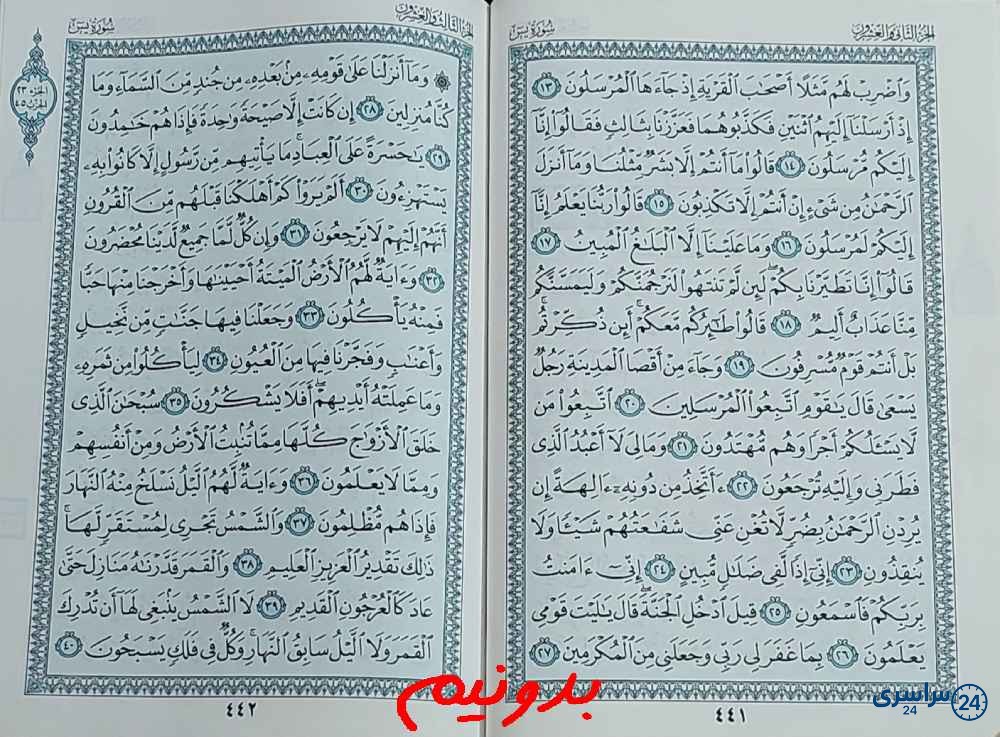 الجزء الثاني والعشرون
سورة يس
وَٱضۡرِبۡ لَهُم مَّثَلًا أَصۡحَٰبَ ٱلۡقَرۡيَةِ إِذۡ جَآءَهَا ٱلۡمُرۡسَلُونَ ١٣
إِذۡ أَرۡسَلۡنَآ إِلَيۡهِمُ ٱثۡنَيۡنِ فَكَذَّبُوهُمَا فَعَزَّزۡنَا بِثَالِثٖ فَقَالُوٓاْ إِنَّآ
إِلَيۡكُم مُّرۡسَلُونَ ١٤ قَالُواْ مَآ أَنتُمۡ إِلَّا بَشَرٞ مِّثۡلُنَا وَمَآ أَنزَلَ
ٱلرَّحۡمَٰنُ مِن شَيۡءٍ إِنۡ أَنتُمۡ إِلَّا تَكۡذِبُونَ ١٥ قَالُواْ رَبُّنَا يَعۡلَمُ إِنَّآ
إِلَيۡكُمۡ لَمُرۡسَلُونَ ١٦ وَمَا عَلَيۡنَآ إِلَّا ٱلۡبَلَٰغُ ٱلۡمُبِينُ ١٧
قَالُوٓاْ إِنَّا تَطَيَّرۡنَا بِكُمۡۖ لَئِن لَّمۡ تَنتَهُواْ لَنَرۡجُمَنَّكُمۡ وَلَيَمَسَّنَّكُم
مِّنَّا عَذَابٌ أَلِيمٞ ١٨ قَالُواْ طَٰٓئِرُكُم مَّعَكُمۡ أَئِن ذُكِّرۡتُمۚ
بَلۡ أَنتُمۡ قَوۡمٞ مُّسۡرِفُونَ ١٩ وَجَآءَ مِنۡ أَقۡصَا ٱلۡمَدِينَةِ رَجُلٞ
يَسۡعَىٰ قَالَ يَٰقَوۡمِ ٱتَّبِعُواْ ٱلۡمُرۡسَلِينَ ٢٠ ٱتَّبِعُواْ مَن
لَّا يَسۡـَٔلُكُمۡ أَجۡرٗا وَهُم مُّهۡتَدُونَ ٢١ وَمَالِيَ لَآ أَعۡبُدُ ٱلَّذِي
فَطَرَنِي وَإِلَيۡهِ تُرۡجَعُونَ ٢٢ ءَأَتَّخِذُ مِن دُونِهِۦٓ ءَالِهَةً إِن
يُرِدۡنِ ٱلرَّحۡمَٰنُ بِضُرّٖ لَّا تُغۡنِ عَنِّي شَفَٰعَتُهُمۡ شَيۡـٔٗا وَلَا
يُنقِذُونِ ٢٣ إِنِّيٓ إِذٗا لَّفِي ضَلَٰلٖ مُّبِينٍ ٢٤ إِنِّيٓ ءَامَنتُ
بِرَبِّكُمۡ فَٱسۡمَعُونِ ٢٥ قِيلَ ٱدۡخُلِ ٱلۡجَنَّةَۖ قَالَ يَٰلَيۡتَ قَوۡمِي
يَعۡلَمُونَ ٢٦ بِمَا غَفَرَ لِي رَبِّي وَجَعَلَنِي مِنَ ٱلۡمُكۡرَمِينَ ٢٧
٤٤١
الجزء الثالث والعشرون
سورة يس
الجزء ٢٣
الحزب ٤٥
۞ وَمَآ أَنزَلۡنَا عَلَىٰ قَوۡمِهِۦ مِنۢ بَعۡدِهِۦ مِن جُندٖ مِّنَ ٱلسَّمَآءِ وَمَا
كُنَّا مُنزِلِينَ ٢٨ إِن كَانَتۡ إِلَّا صَيۡحَةٗ وَٰحِدَةٗ فَإِذَا هُمۡ خَٰمِدُونَ
٢٩ يَٰحَسۡرَةً عَلَى ٱلۡعِبَادِۚ مَا يَأۡتِيهِم مِّن رَّسُولٍ إِلَّا كَانُواْ بِهِۦ
يَسۡتَهۡزِءُونَ ٣٠ أَلَمۡ يَرَوۡاْ كَمۡ أَهۡلَكۡنَا قَبۡلَهُم مِّنَ ٱلۡقُرُونِ
أَنَّهُمۡ إِلَيۡهِمۡ لَا يَرۡجِعُونَ ٣١ وَإِن كُلّٞ لَّمَّا جَمِيعٞ لَّدَيۡنَا مُحۡضَرُونَ
٣٢ وَءَايَةٞ لَّهُمُ ٱلۡأَرۡضُ ٱلۡمَيۡتَةُ أَحۡيَيۡنَٰهَا وَأَخۡرَجۡنَا مِنۡهَا حَبّٗا
فَمِنۡهُ يَأۡكُلُونَ ٣٣ وَجَعَلۡنَا فِيهَا جَنَّٰتٖ مِّن نَّخِيلٖ
وَأَعۡنَٰبٖ وَفَجَّرۡنَا فِيهَا مِنَ ٱلۡعُيُونِ ٣٤ لِيَأۡكُلُواْ مِن ثَمَرِهِۦ
وَمَا عَمِلَتۡهُ أَيۡدِيهِمۡۚ أَفَلَا يَشۡكُرُونَ ٣٥ سُبۡحَٰنَ ٱلَّذِي
خَلَقَ ٱلۡأَزۡوَٰجَ كُلَّهَا مِمَّا تُنۢبِتُ ٱلۡأَرۡضُ وَمِنۡ أَنفُسِهِمۡ
وَمِمَّا لَا يَعۡلَمُونَ ٣٦ وَءَايَةٞ لَّهُمُ ٱلَّيۡلُ نَسۡلَخُ مِنۡهُ ٱلنَّهَارَ
فَإِذَا هُم مُّظۡلِمُونَ ٣٧ وَٱلشَّمۡسُ تَجۡرِي لِمُسۡتَقَرّٖ لَّهَاۚ
ذَٰلِكَ تَقۡدِيرُ ٱلۡعَزِيزِ ٱلۡعَلِيمِ ٣٨ وَٱلۡقَمَرَ قَدَّرۡنَٰهُ مَنَازِلَ حَتَّىٰ
عَادَ كَٱلۡعُرۡجُونِ ٱلۡقَدِيمِ ٣٩ لَا ٱلشَّمۡسُ يَنۢبَغِي لَهَآ أَن تُدۡرِكَ
ٱلۡقَمَرَ وَلَا ٱلَّيۡلُ سَابِقُ ٱلنَّهَارِۚ وَكُلّٞ فِي فَلَكٖ يَسۡبَحُونَ ٤٠
٤٤٢
بدونیم
سراسری
24
24